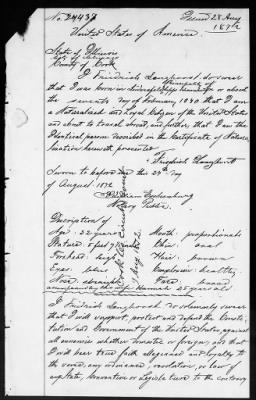 No. 24438 Issued 28 Aug
1872
United States of America.
State of Illinois
County of Cook
I Friedrich Langhorst do swear
that I was born in Germany on or about
the seventh day of February, 1840 that I am
a Naturalized and loyal Citizen of the United States
and about to travel abroad, and further, that I am the
Identical person described in the Certificate of Natura-
lization herewith presented
Friedrich Langhorst
Sworn to before me this 24th day
of August 1872
Notary Public.
Description of
Age: 32 years Mouth proportionate
Stature 5 feet 9 Chin: oval
Forehead high Hair: brown
Eyes blue Complexion healthy
Nose straight Face
25 years
I Friedrich Langhorst do solemnly swear
that I will support, protect and defend the Consti-
tution and Government of the United States, against
all enemies whether domestic or foreign, and that
I will bear true faith allegiance and loyalty to
the same, any ordinance, resolution, or law of
any State, Convention or Legislature to the contrary